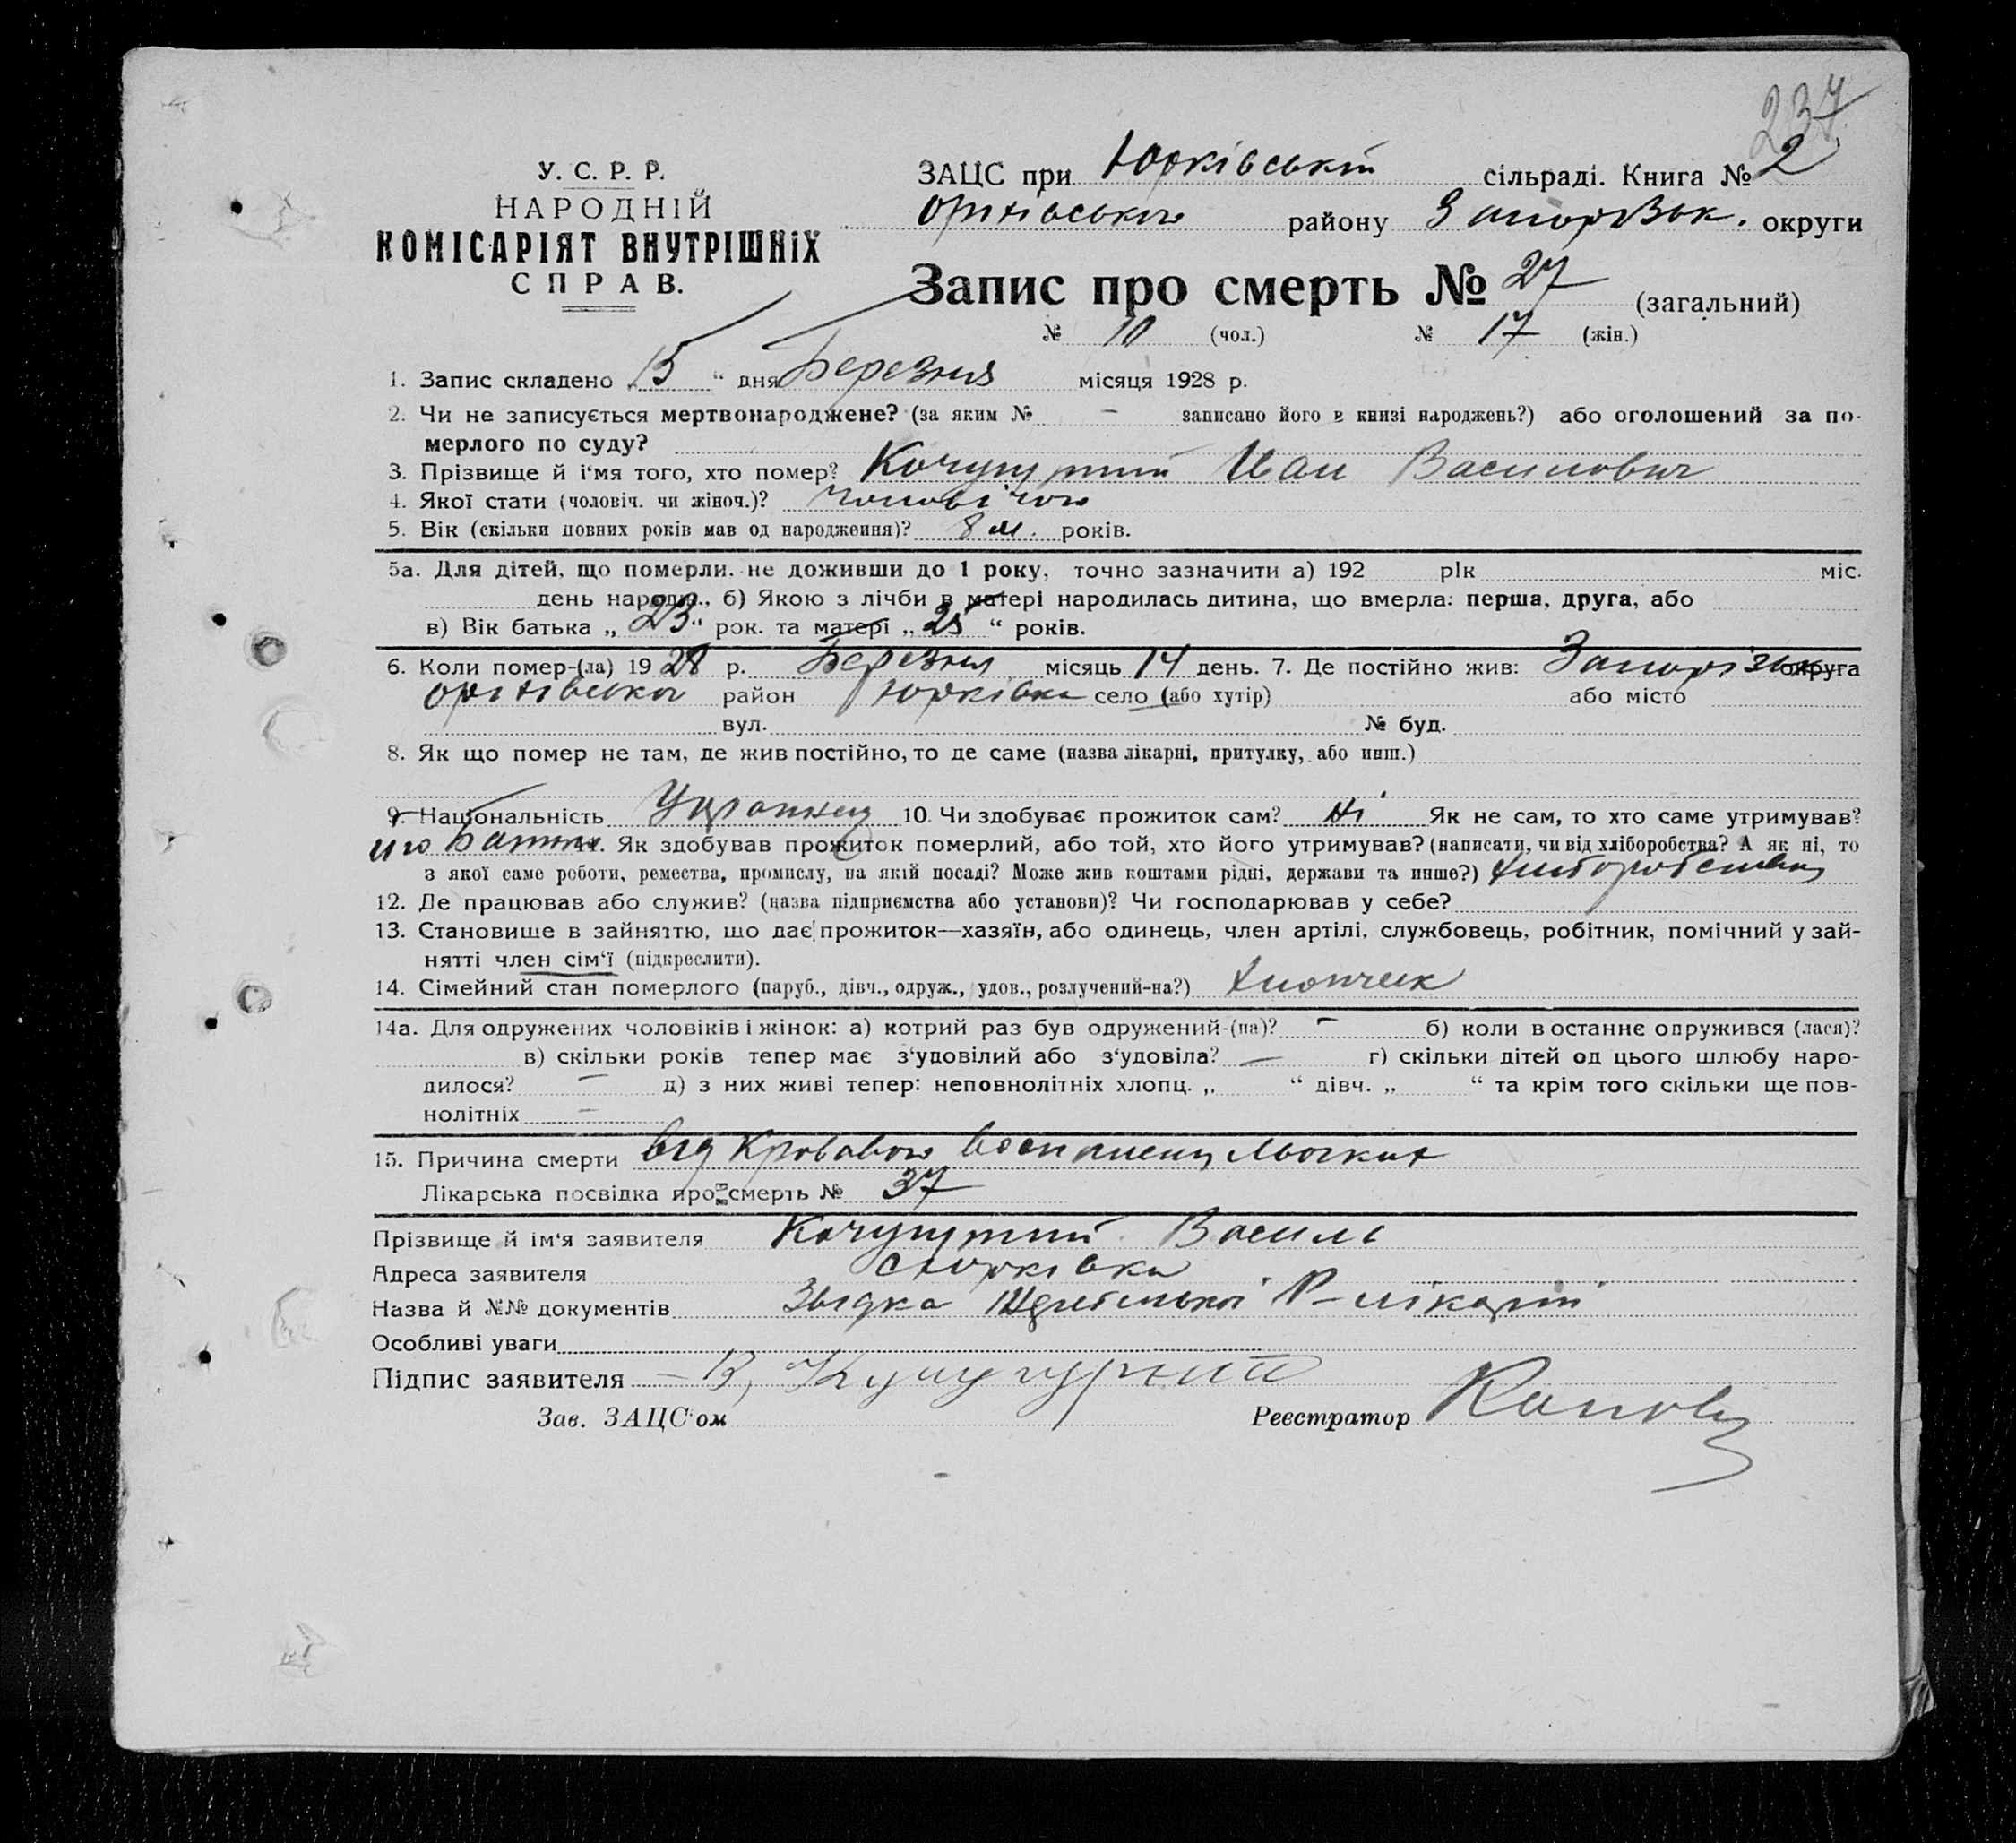 237
У. С. Р. Р.
НАРОДНІЙ
КОМІСАРІЯТ ВНУТРІШНІХ
СПРАВ.
ЗАЦС при Юрківській сільраді. Книга № 2
Оріхівського району Запорізьк. округи
Запис про смерть № 27 (загальний)
№ 10 (чол.) № 17 (жін.)
1. Запис складено „15“ дня Березня місяця 1928 р.
2. Чи не записується мертвонароджене? (за яким № – записано його в книзі народжень?) або оголошений за по-
мерлого по суду?
3. Прізвище й ім'я того, хто помер? Иван Василович
4. Якої стати (чоловіч. чи жіноч.)? чоловічого
5. Вік (скільки повних років мав од народження)? 8 м. років.
5а. Для дітей, що померли, не доживши до 1 року, точно зазначити а) 192 рік міс.
день народж., б) Якою з лічби в матері народилась дитина, що вмерла: перша, друга, або
в) Вік батька „23“ рок. та матері „25“ років.
6. Коли помер-(ла) 1928 р. Березня місяць 14 день. 7. Де постійно жив: Запорізька округа
Оріхівського район Юрківка село (або хутір) або місто
вул. № буд.
8. Як що помер не там, де жив постійно, то де саме (назва лікарні, притулку, або инш.)
9. Національність 10. Чи здобуває прожиток сам? ні Як не сам, то хто саме утримував?
його Батько. Як здобував прожиток померлий, або той, хто його утримував? (написати, чи від хліборобства? А як ні, то
з якої саме роботи, ремества, промислу, на якій посаді? Може жив коштами рідні, держави та инше?) хліборобством
12. Де працював або служив? (назва підприємства або установи)? Чи господарював у себе?
13. Становище в зайняттю, що дає прожиток—хазяїн, або одинець, член артілі, службовець, робітник, помічний у зай-
нятті член сім'ї (підкреслити).
14. Сімейний стан померлого (паруб., дівч., одруж., удов., розлучений-на?) хлопчик
14а. Для одружених чоловіків і жінок: а) котрий раз був одружений-(на)? – б) коли востаннє одружився (лася)?
в) скільки років тепер має з'удовілий або з'удовіла? – г) скільки дітей од цього шлюбу наро-
дилося? – д) з них живі тепер: неповнолітніх хлопц. „ “ дівч. „ “ та крім того скільки ще пов-
нолітніх –
15. Причина смерти від Кровавого
Лікарська посвідка про смерть № 37
Прізвище й ім'я заявителя Василь
Адреса заявителя с Юрківка
Назва й №№ документів лікарні
Особливі уваги
Підпис заявителя – В,
Зав. ЗАЦС'ом Реєстратор